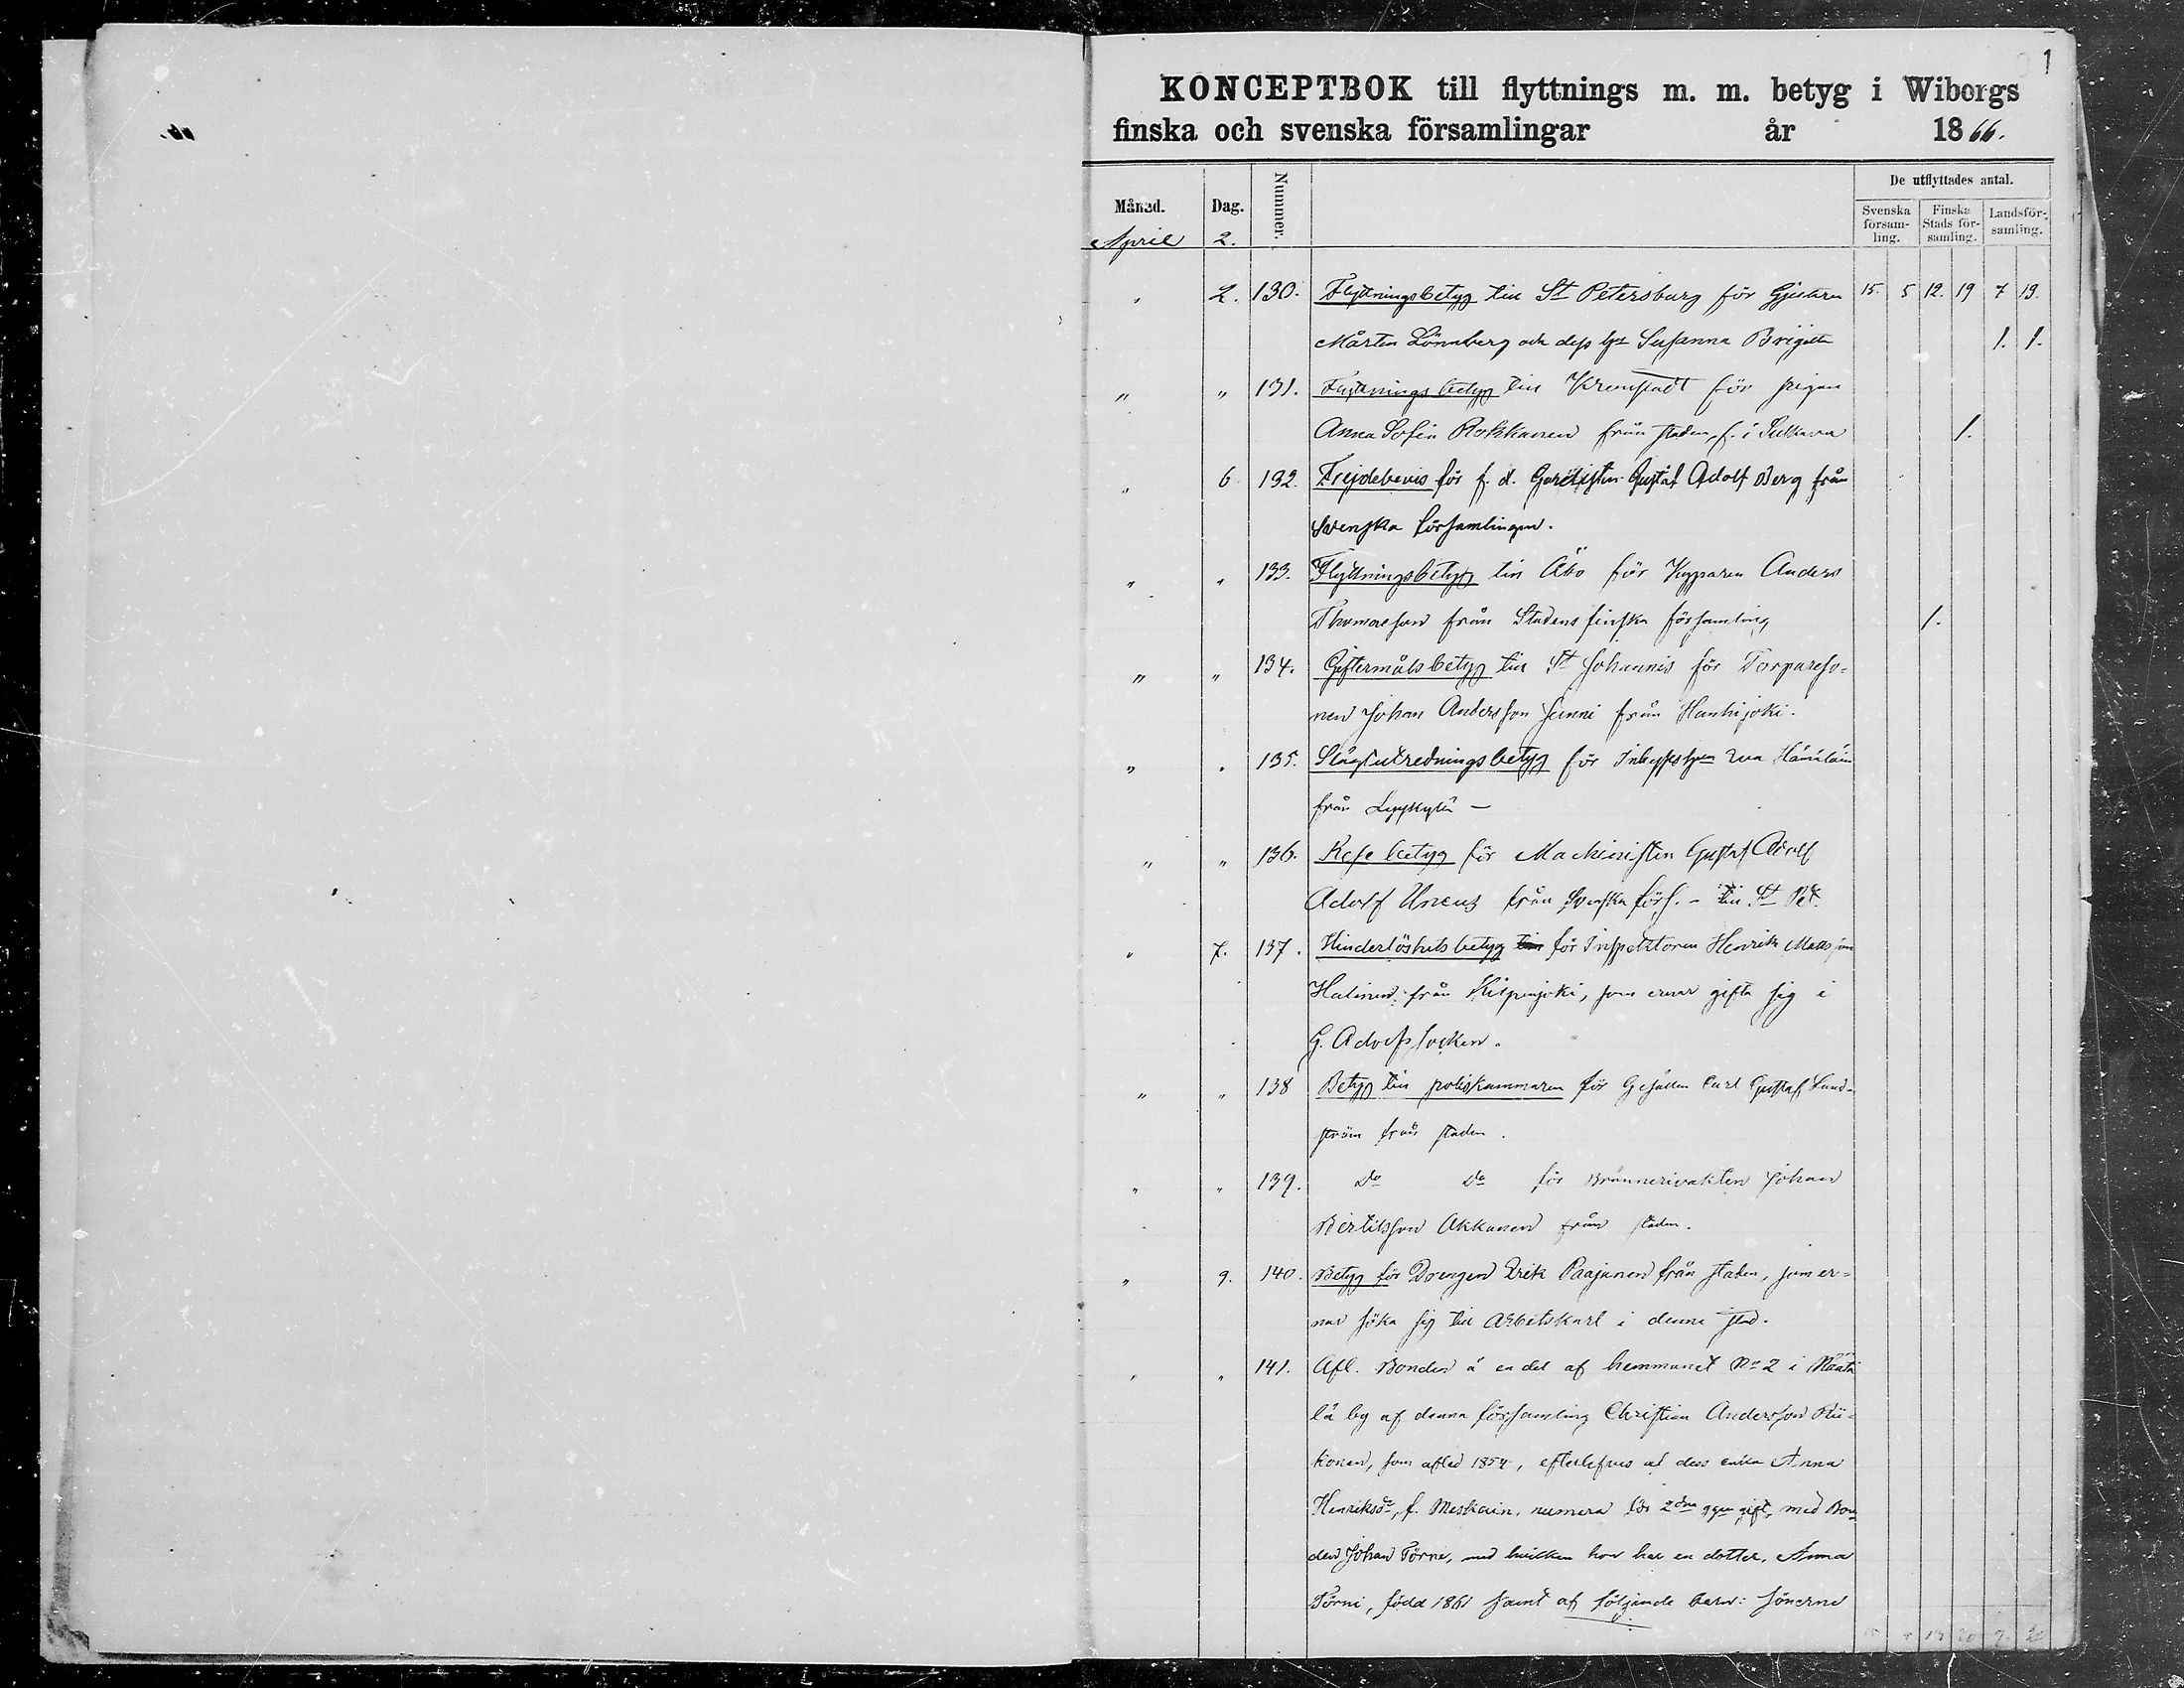 1
KONCEPTBOK till flyttnings m. m. betyg i Wiborgs
finska och svenska församlingar år 1866.
Månad. Dag. Nummer. De utflyttades antal.
Svenska församling. Finska Stads församling. Landsförsamling.
April 2.
" 2. 130. Flyttningsbetyg till St Petersburg för 15. 5 12. 19 7 19.
Mårten Lönnberg och dess Susanna Brigitta 1. 1.
" " 131. Flyttningsbetyg till Kronstadt för pigan
Anna Sofia Rokkanen från staden, f. i Sulkava 1.
" 6 132. Frejdebevis för f. d. Gustaf Adolf Berg från
Svenska församlingen.
" " 133. Flyttningsbetyg till Åbo för Kyparen Anders
Thomasson från Stadens finska församling 1.
" " 134. Giftermålsbetyg till St Johannis för Torpareso-
nen Johan Andersson från Hanhijoki.
" " 135. Slägtutredningsbetyg för Hämäläin
från
" " 136. Resebetyg för Machinisten Gustaf Adolf
Adolf från Svenska förs. - till St Pet.
" 7. 137. Hinderlöshets betyg till för Inspektoren Henrik Matsson
Halinen från Kilpenjoki, som ernar gifta sig i
G. Adolfs socken.
" " 138 Betyg till poliskammaren för Gesällen Carl Gustaf Lund-
ström från staden.
" " 139. Do Do för Brännerivakten Johan
Bertilsson Akkanen från staden.
" 9. 140. Betyg för Drengen Erik Paajanen från staden, som er-
nar söka sig till Arbetskarl i denna stad.
" " 141. Afl. Bonden å en del af hemmanet No 2 i Näätä
lä by af denna församling Christian Andersson Rii-
konen, som afled 1854, efterlefves af dess enka Anna
Henriksdr, f. Meskain, numera för 2dra ggn gift med Bon-
den Johan Törne, med hvilken hon har en dotter, Anna
Törni, född 1861 samt af följande barn: sönerne